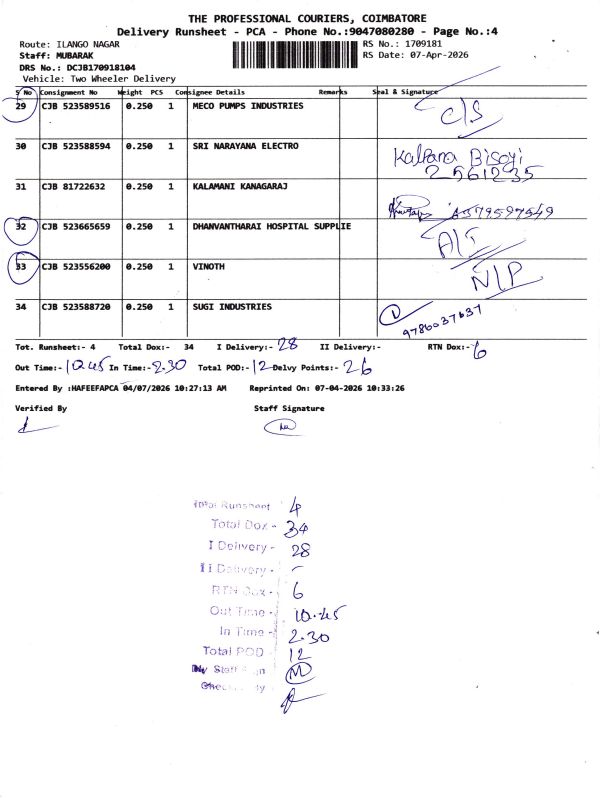 THE PROFESSIONAL COURIERS, COIMBATORE
Delivery Runsheet - PCA - Phone No.:9047080280 - Page No.:4
Route: ILANGO NAGAR RS No.: 1709181
Staff: MUBARAK RS Date: 07-Apr-2026
DRS No.: DCJB170918104
Vehicle: Two Wheeler Delivery
S No Consignment No Weight PCS Consignee Details Remarks Seal & Signature
29 CJB 523589516 0.250 1 MECO PUMPS INDUSTRIES C/S
30 CJB 523588594 0.250 1 SRI NARAYANA ELECTRO Kalpana Bisoyi
2561235
31 CJB 81722632 0.250 1 KALAMANI KANAGARAJ
32 CJB 523665659 0.250 1 DHANVANTHARAI HOSPITAL SUPPLIE
33 CJB 523556200 0.250 1 VINOTH N/P
34 CJB 523588720 0.250 1 SUGI INDUSTRIES 9786037637
Tot. Runsheet:- 4 Total Dox:- 34 I Delivery:- 28 II Delivery:- RTN Dox:- 6
Out Time:- 10.45 In Time:- 2.30 Total POD:- 12 Delvy Points:- 26
Entered By :HAFEEFAPCA 04/07/2026 10:27:13 AM Reprinted On: 07-04-2026 10:33:26
Verified By Staff Signature
Total Runsheet 4
Total Dox - 34
I Delivery - 28
II Delivery - -
RTN Dox - 6
Out Time - 10.45
In Time - 2.30
Total POD - 12